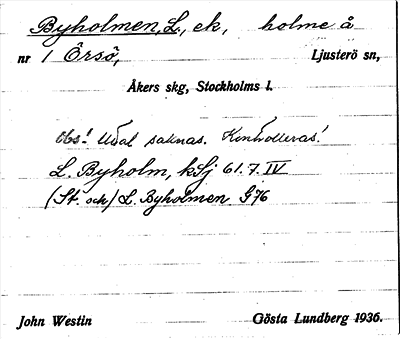 Byholmen, L., ek, holme å
nr 1 Örsö, Ljusterö sn,
Åkers skg, Stockholms l.
Obs! Udal saknas. Kontrolleras!
L. Byholm, kSj 61.7.IV
(St. och) L. Byholmen G76
John Westin Gösta Lundberg 1936.